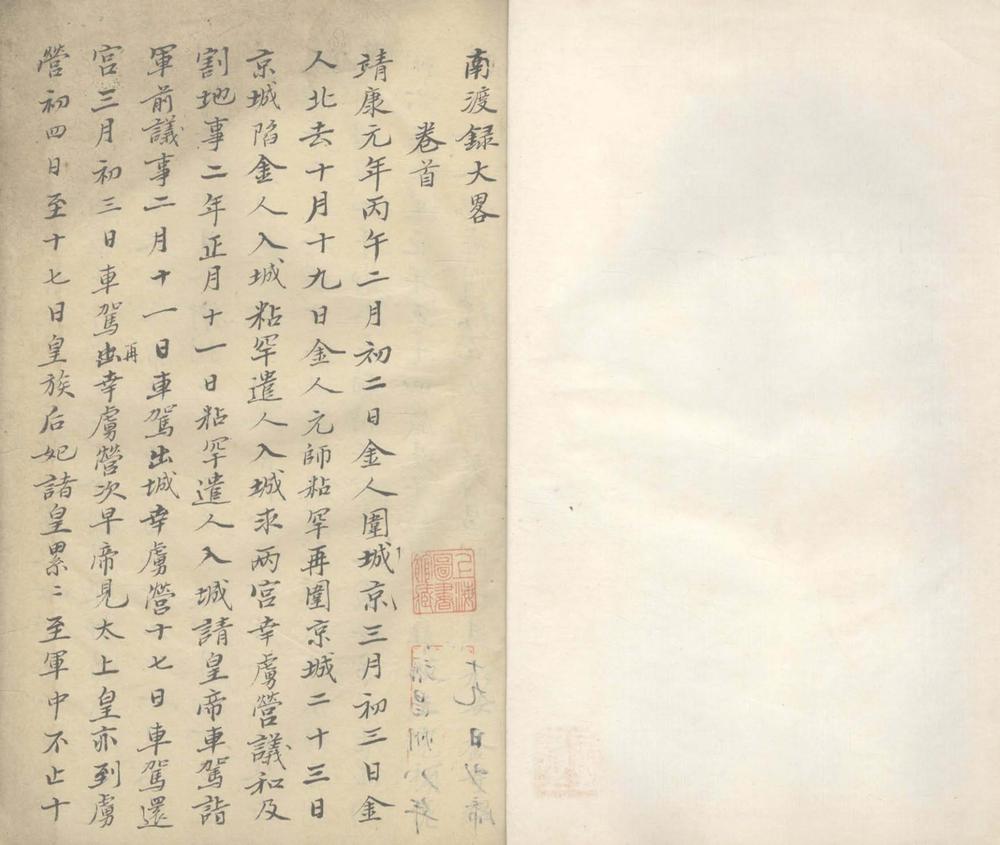 南渡録大畧
卷首
靖康元年丙午二月初二日金人圍城京三月初三日金
人北去十月十九日金人元師粘罕再圍京城二十三日
京城陷金人入城粘罕遣人入城求两宫幸虜營議和及
割地事二年正月十一日粘罕遣人入城請皇帝車駕詣
軍前議事二月十一日車駕出城幸虜營十七日車駕還
宫三月初三日車駕出再幸虜營次早帝見太上皇亦到虜
營初四日至十七日皇族后妃諸皇累〻至軍中不止十
上海圖書館藏